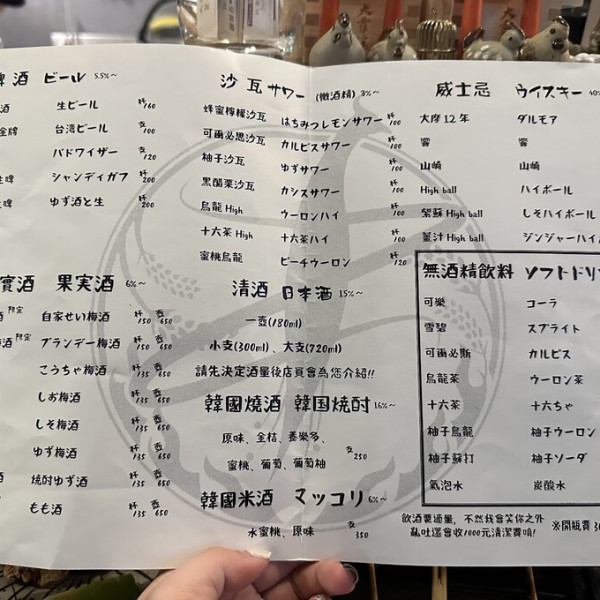 啤酒 ビール 5.5%～
生ビール 杯/160
台湾ビール 支/100
バドワイザー 支/120
シャンディガフ 杯/200
ゆず酒と生 杯/200
實酒 果実酒 6%～
自家せい梅酒 杯/150 壺/650
ブランデー梅酒 杯/150 壺/650
こうちゃ梅酒 杯/135 壺/650
しお梅酒 杯/135 壺/650
しそ梅酒 杯/135 壺/650
ゆず梅酒 杯/135 壺/650
焼酎ゆず酒 杯/135 壺/650
もも酒 杯/135 壺/650
沙瓦 サワー (微酒精) 3%～
蜂蜜檸檬沙瓦 はちみつレモンサワー 杯/100
可爾必思沙瓦 カルピスサワー 杯/100
柚子沙瓦 ゆずサワー 杯/100
黑醋栗沙瓦 カシスサワー 杯/100
烏龍 High ウーロンハイ 杯/100
十六茶 High 十六茶ハイ 杯/100
蜜桃烏龍 ピーチウーロン 杯/120
清酒 日本酒 15%～
一壺(180ml)
小支(300ml)、大支(720ml)
請先決定酒量後店員會為您介紹!!
韓國燒酒 韓国焼酎 16%～
原味、金桔、養樂多、
蜜桃、葡萄、葡萄柚 支/250
韓國米酒 マッコリ 6%～
水蜜桃、原味 支/350
威士忌 ウイスキー 40%
大摩12年 ダルモア
響 響
山崎 山崎
High ball ハイボール
紫蘇 High ball しそハイボール
薑汁 High ball ジンジャーハイ
無酒精飲料 ソフトドリ
可樂 コーラ
雪碧 スプライト
可爾必斯 カルピス
烏龍茶 ウーロン茶
十六茶 十六ちゃ
柚子烏龍 柚子ウーロン
柚子蘇打 柚子ソーダ
氣泡水 炭酸水
飲酒要適量，不然我會笑你之外
亂吐還會收1000元清潔費唷!
※開瓶費